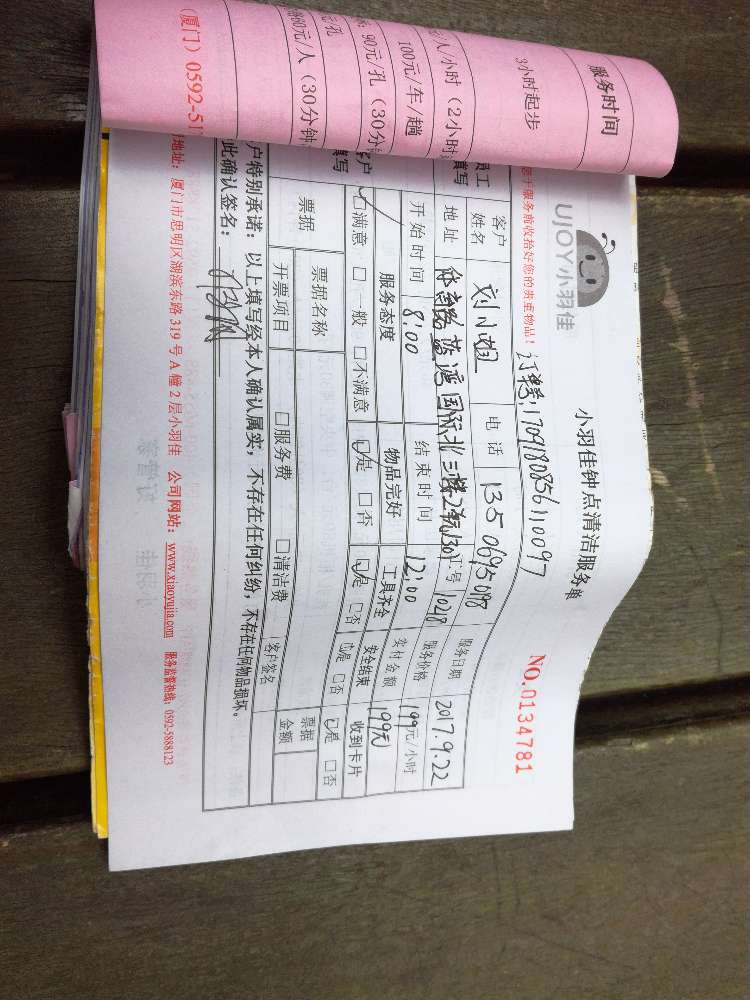 服务时间
3小时起步
元/人/小时（2小时
100元/车/趟
90元/孔（30分
元/孔
80元/人（30分钟
（厦门）0592-51
UJOY小羽佳
小羽佳钟点清洁服务单
NO.0134781
服务前收拾好您的贵重物品！
1709180856110097
客户姓名 刘小姐 电话 1350695098 服务日期 2017.9.22
地址 体育路蓝湾国际北三梯2轨1301 工号 1028 服务价格 199元/小时
开始时间 8:00 结束时间 12:00 实付金额 199元
服务态度 物品完好 工具齐全 安全结束 收到卡片
☑满意 □一般 □不满意 ☑是 □否 ☑是 □否 ☑是 □否 ☑是 □否
票据 票据名称 票据金额
开票项目 □服务费 □清洁费 客户签名
户特别承诺：以上填写经本人确认属实，不存在任何纠纷，不存在任何物品损坏。
此确认签名：
地址：厦门市思明区湖滨东路319号A幢2层小羽佳 公司网站：www.xiaoyujia.com 服务监督热线：0592-5888123